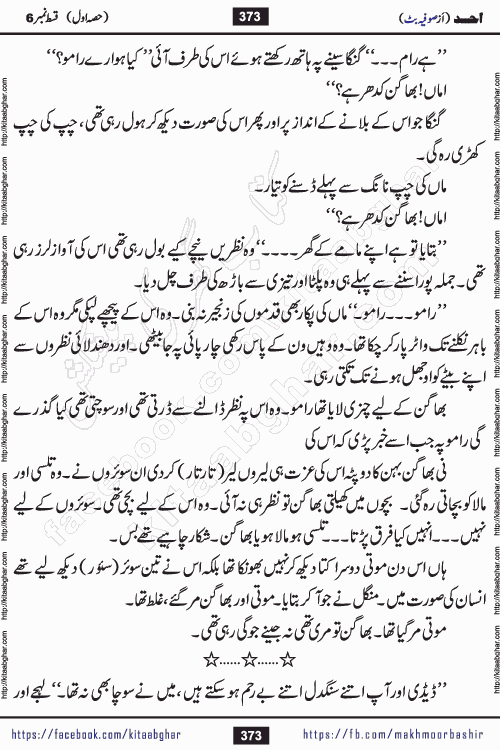 احد (از صوفیہ بٹ) 373 (حصہ اول) قسط نمبر 6
’’ہے رام۔۔۔‘‘ گنگا سینے پہ ہاتھ رکھتے ہوئے اس کی طرف آئی’’ کیا ہوا رے رامو؟‘‘
اماں! بھاگن کدھر ہے؟‘‘
گنگا جو اس کے بلانے کے انداز پر اور پھر اس کی صورت دیکھ کر ہول رہی تھی، چپ کی چپ
کھڑی رہ گی۔
ماں کی چپ نانگ سے پہلے ڈسنے کو تیار۔
اماں! بھاگن کدھر ہے؟‘‘
’’بتایا تو ہے اپنے مامے کے گھر۔۔۔۔‘‘ وہ نظریں نیچے کیے بول رہی تھی اس کی آواز لرز رہی
تھی۔ جملہ پورا سننے سے پہلے ہی وہ پلٹا اور تیزی سے باڑھ کی طرف چل دیا۔
’’رامو۔۔۔ رامو۔‘‘ ماں کی پکار بھی قدموں کی زنجیر نہ بنی۔ وہ اس کے پیچھے لپکی مگر وہ اس کے
باہر نکلنے تک واٹر پار کر چکا تھا۔ وہ وہیں ون کے پاس رکھی چارپائی پہ جا بیٹھی۔ اور دھندلائی نظروں سے
اپنے بیٹے کو اوجھل ہونے تک تکتی رہی۔
بھاگن کے لیے چنزی لایا تھا رامو۔ وہ اس پہ نظر ڈالنے سے ڈرتی تھی اور سوچتی تھی کیا گذرے
گی رامو پہ جب اسے خبر پڑی کہ اس کی
نی بھاگن بہن کا دوپٹہ اس کی عزت ہی لیروں لیر (تار تار) کر دی ان سوئروں نے۔ وہ تلسی اور
مالا کو بچاتی رہ گئی۔ بچوں میں کھیلتی بھاگن تو نظر ہی نہ آئی۔ وہ اس کے لیے بچی تھی۔ سوئروں کے لیے
نہیں۔۔۔ انہیں کیا فرق پڑتا۔۔۔ تلسی ہو مالا ہو یا بھاگن۔ شکار چاہیے تھے بس۔
ہاں اس دن موتی دوسرا کتا دیکھ کر نہیں بھونکا تھا بلکہ اس نے تین سوئر (سئور) دیکھ لیے تھے
انسان کی صورت میں۔ منگل نے جو آ کر بتایا۔ موتی اور بھاگن مر گئے، غلط تھا۔
موتی مر گیا تھا۔ بھاگن تو مری تھی نہ جینے جوگی رہی تھی۔
☆......☆......☆
’’ڈیڈی اور آپ اتنے سنگدل اتنے بے رحم ہو سکتے ہیں، میں نے سوچا بھی نہ تھا۔‘‘ لہجے اور
https://facebook.com/kitaabghar 373 https://fb.com/makhmoorbashir
http://kitaabghar.com